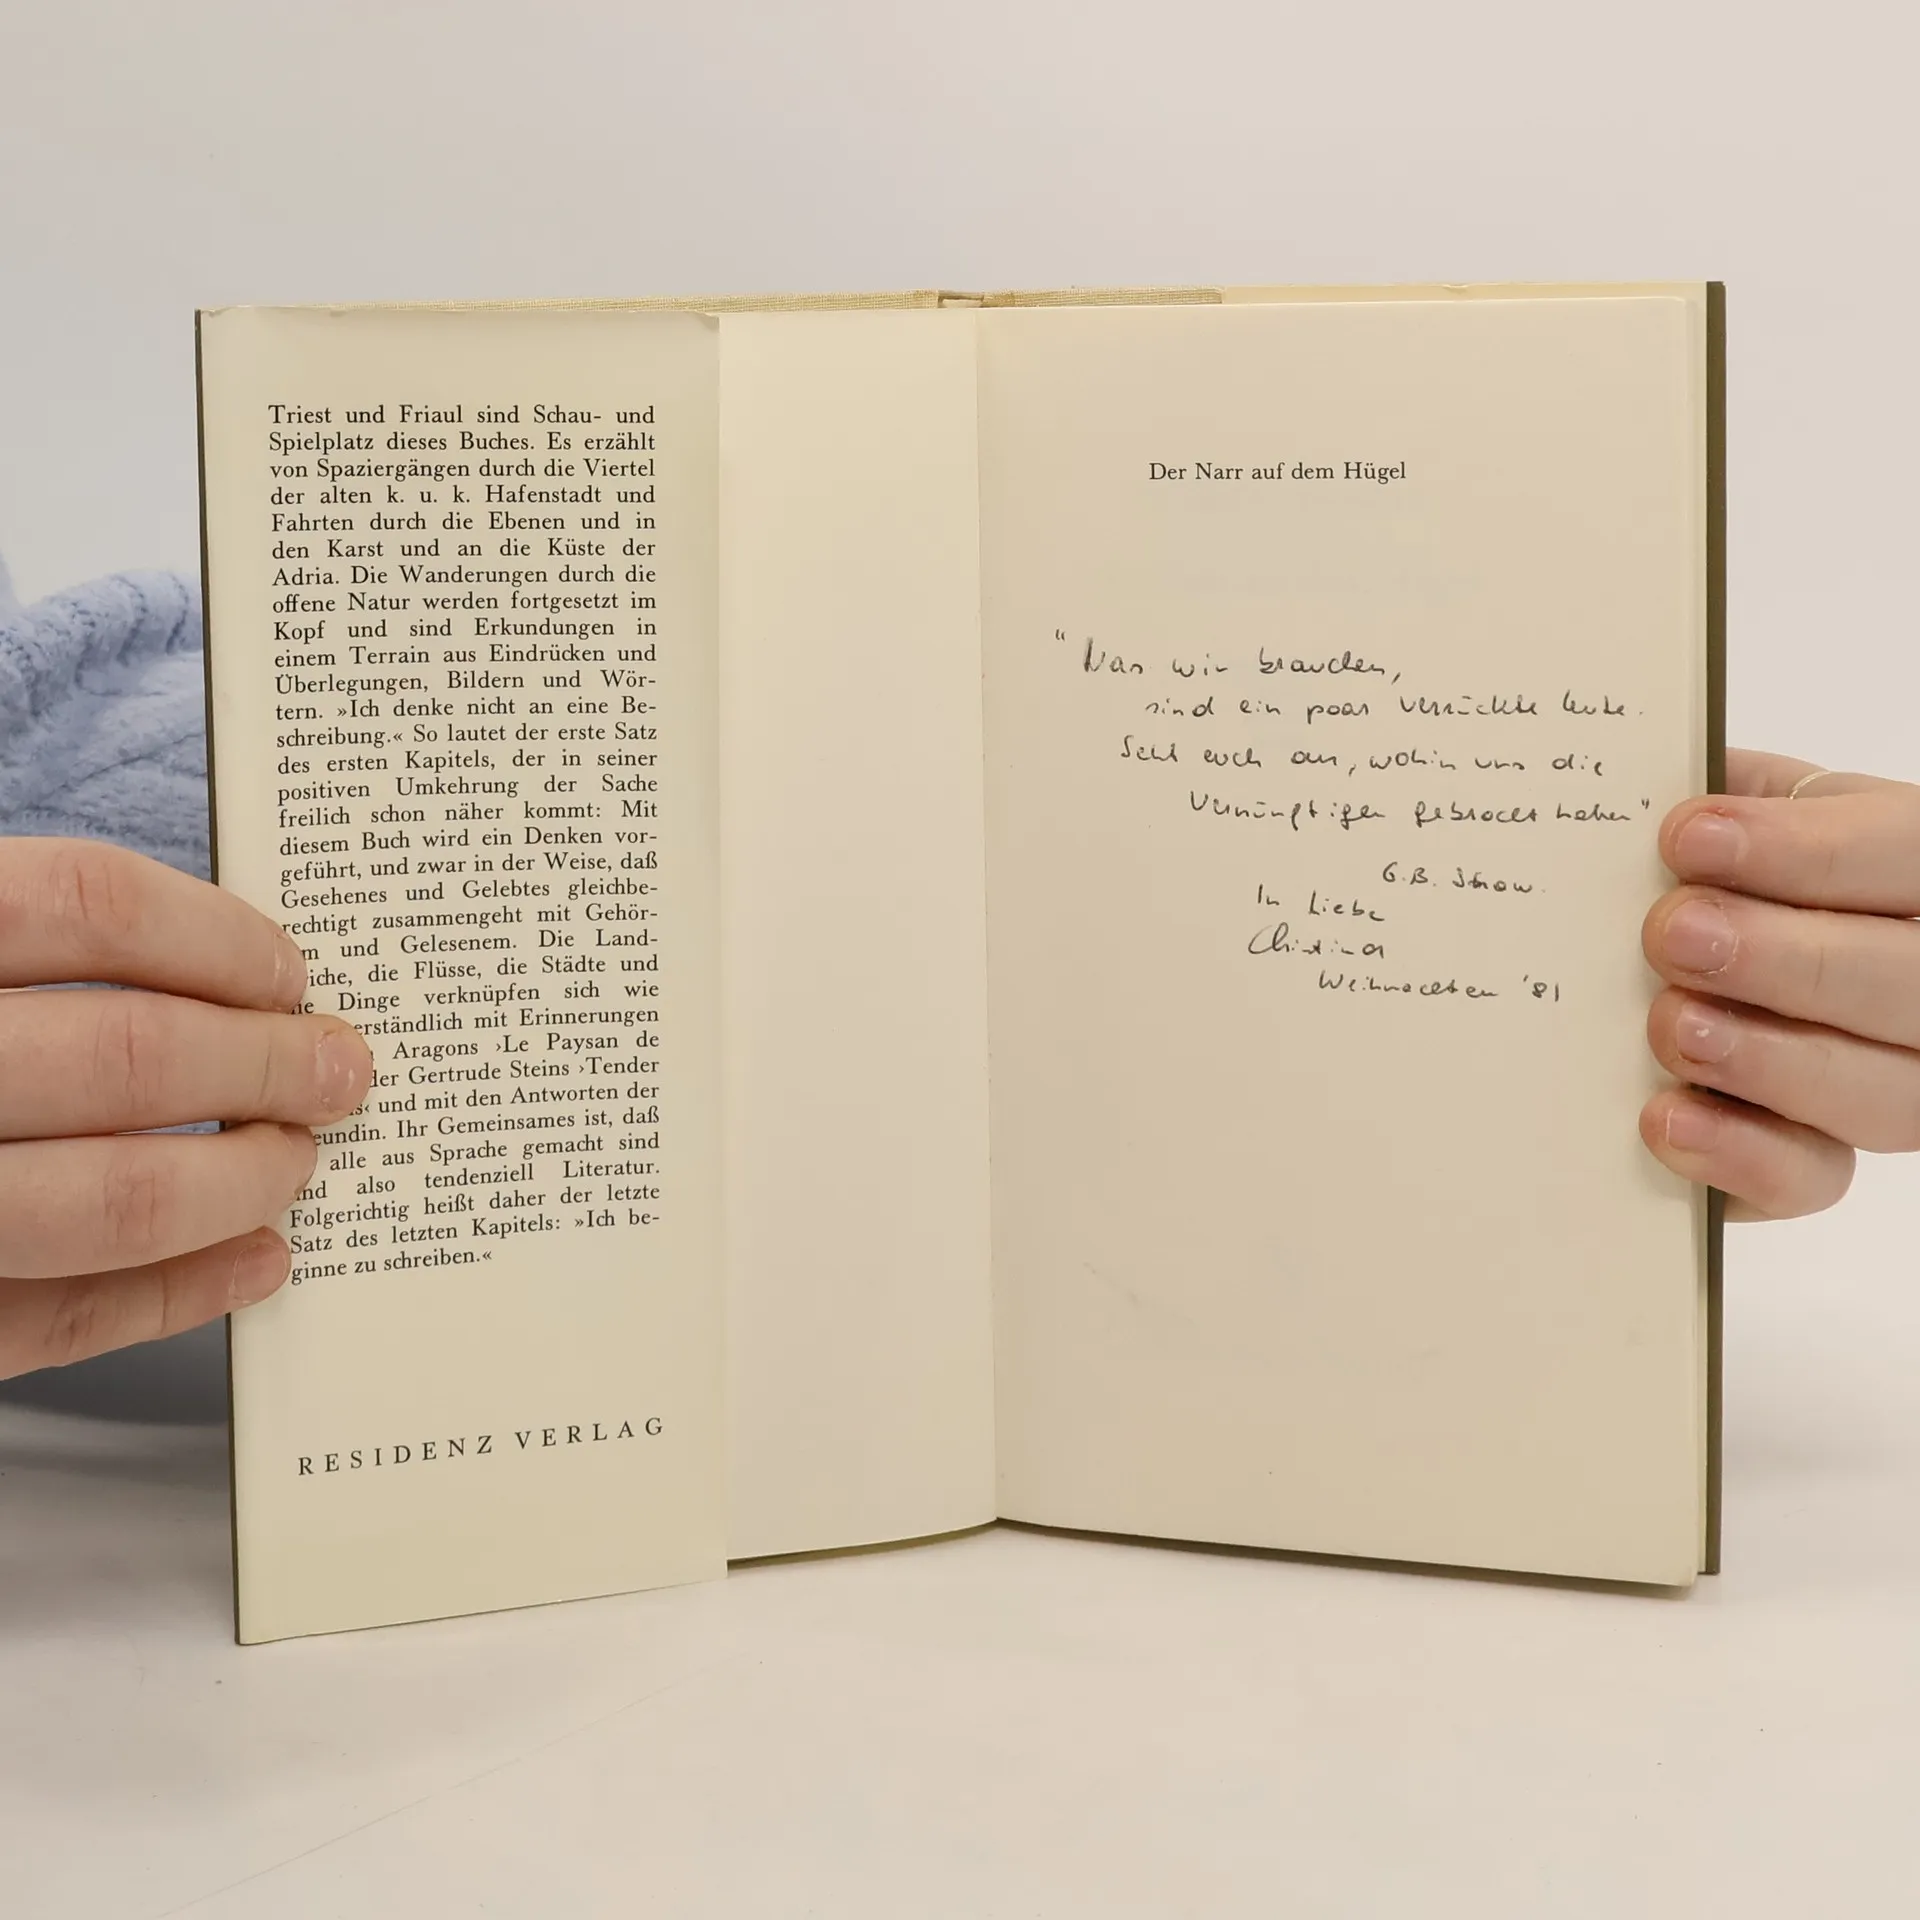 Triest und Friaul sind Schau- und
Spielplatz dieses Buches. Es erzählt
von Spaziergängen durch die Viertel
der alten k. u. k. Hafenstadt und
Fahrten durch die Ebenen und in
den Karst und an die Küste der
Adria. Die Wanderungen durch die
offene Natur werden fortgesetzt im
Kopf und sind Erkundungen in
einem Terrain aus Eindrücken und
Überlegungen, Bildern und Wör-
tern. »Ich denke nicht an eine Be-
schreibung.« So lautet der erste Satz
des ersten Kapitels, der in seiner
positiven Umkehrung der Sache
freilich schon näher kommt: Mit
diesem Buch wird ein Denken vor-
geführt, und zwar in der Weise, daß
Gesehenes und Gelebtes gleichbe-
rechtigt zusammengeht mit Gehör-
und Gelesenem. Die Land-
die Flüsse, die Städte und
Dinge verknüpfen sich wie
mit Erinnerungen
Aragons ›Le Paysan de
Gertrude Steins ›Tender
und mit den Antworten der
Ihr Gemeinsames ist, daß
alle aus Sprache gemacht sind
also tendenziell Literatur.
Folgerichtig heißt daher der letzte
Satz des letzten Kapitels: »Ich be-
ginne zu schreiben.«
RESIDENZ VERLAG
Der Narr auf dem Hügel
"Was wir brauchen,
sind ein paar verrückte Leute.
Seht euch an, wohin uns die
Vernünftigen gebracht haben"
G.B. Shaw.
In Liebe
Christina
Weihnachten '81